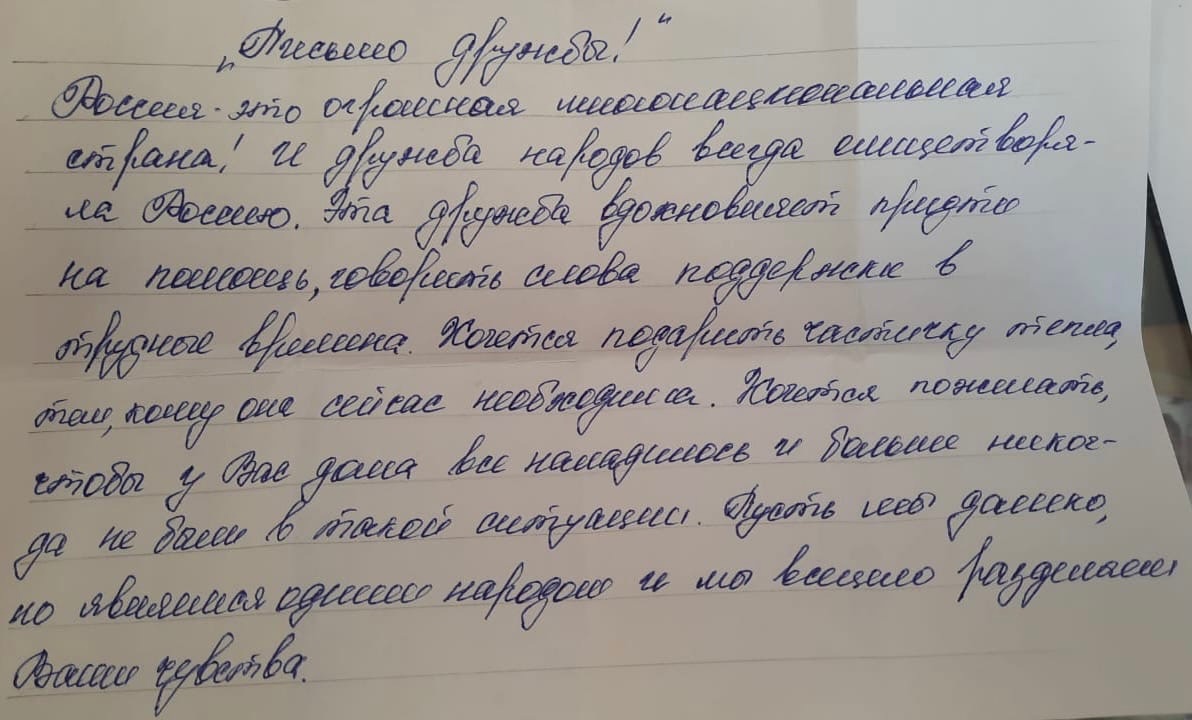 „Письмо дружбы!“
Россия - это огромная многонациональная
страна! И дружба народов всегда олицетворя-
ла Россию. Эта дружба вдохновляет придти
на помощь, говорить слова поддержки в
трудные времена. Хочется подарить частичку тепла,
тем, кому она сейчас необходима. Хочется пожелать,
чтобы у Вас дома все наладилось и больше никог-
да не были в такой ситуации. Пусть мы далеко,
но являемся одним народом и мы всецело разделяем
Ваши чувства.